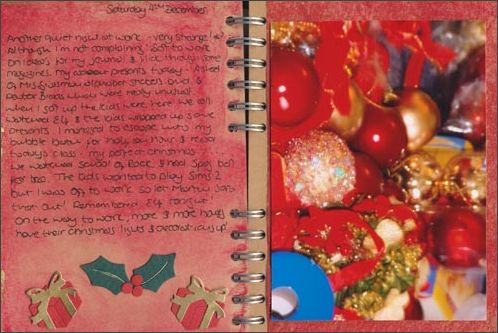 Saturday 4th December
Another quiet night at work - very strange!
Although I'm not complaining! Got to work
on ideas for my journal & flick through some
magazines. My presents today - A sheet
of stickers and 6
which were really unusual.
When I got up the kids were here. We all
watched & the kids wrapped up some
presents. I managed to escape with my
bubble bath for half an hour & read
today's class - my perfect Christmas.
We watched School of Rock & had Spag bol
for tea. The kids wanted to play Sims 2
but I was off to work so let Martin sort
that out! Remembered tonight.
On the way to work, more & more houses
have their Christmas lights & decorations up!